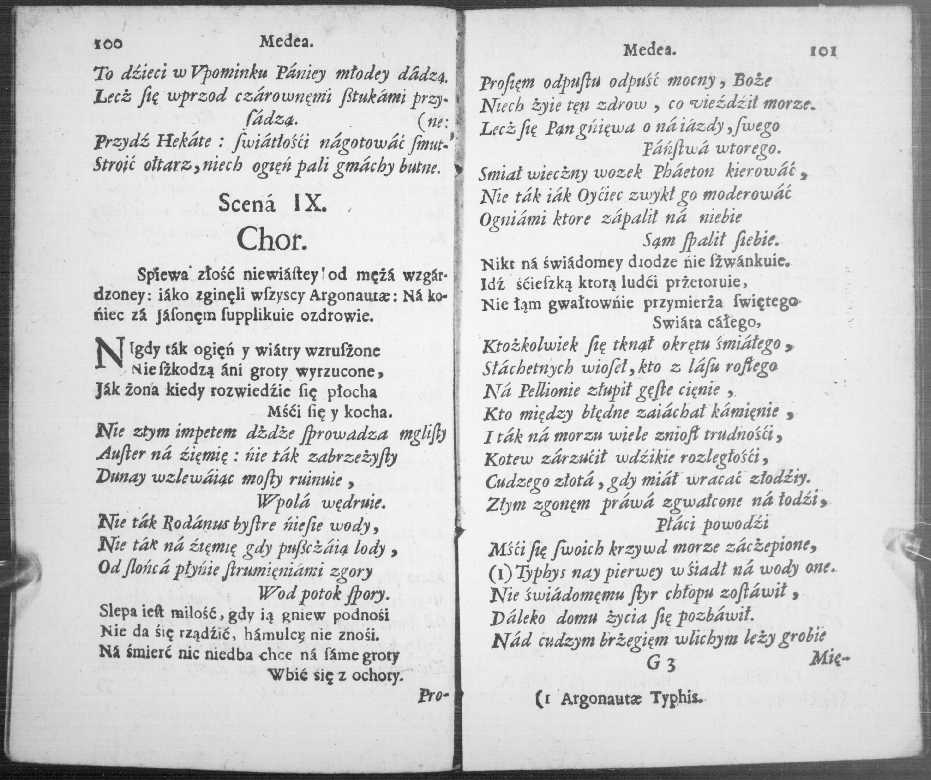 100
Medea.
To dźieci w Vpominku Pániey młodey dádzą.
Lecż ſię wprzod czárownęmi ſštukámi przy-
ſádzą. (ne:
Przydź Hekáte : ſwiátłośći nágotowáć ſmut-
Stroić ołtarz, niech ogięń pali gmáchy butne.
Scená IX.
Chor.
Spiewa złość niewiáſtey od mężá wzgár-
dzoney: iáko zginęli wſzyscy Argonautæ: Ná ko-
ńiec zá Jáſonęm ſupplikuie ozdrowie.
NIgdy ták ogięń y wiátry wzruſżone
Nieſżkodzą áni groty wyrzucone,
Ják żona kiedy rozwiedźie ſię płocha
Mśći ſię y kocha.
Nie złym impetem dżdże ſprowadza mgliſty
Auſter ná źięmię : ńie ták zabrzeżyſty
Dunay wzlewáiąc moſty ruinuie ,
Wpolá wędruie.
Nie ták Rodánus byſtre ńieſie wody,
Nie ták ná źięmię gdy puſsczáią lody ,
Od ſlońcá płyńie ſtrumięniámi zgory
Wod potok ſpory.
Slepa ieſt miłość, gdy ią gniew podnośi
Nie da się rządźić, hámulcȩ nie znośi.
Ná śmierć nic niedba chce ná ſáme groty
Wbić się z ochoty.
Pro-
Medea.
101
Proſięm odpuſtu odpuść mocny, Boże
Niech żyie tęn zdrow , co vieźdźił morze.
Lecż ſię Pąn gńięwa o ná iázdy, ſwego
Páńſtwá wtorego.
Smiał wiecżny wozek Pháeton kierowáć,
Nie ták iák Oyćiec zwykł go moderowáć
Ogniámi ktore zápalił ná niebie
Sąm ſpalił ſiebie.
Nikt ná świádomey drodze ńie ſżwánkuie.
Idź śćieſzką ktorą ludźi prżetoruie,
Nie łąm gwałtowńie przymierża ſwiętego
Swiáta cáłego,
Ktożkolwiek ſię tknął okrętu śmiáłego,
Słáchetnych wioſeł, kto z láſu roſłego
Ná Pellionie złupił gęſte cięnie ,
Kto między błędne zaiáchał kámięnie ,
I ták ná morzu wiele znioſł trudnośći,
Kotew zárzućił wdźikie rozległośći,
Cudzego złotá, gdy miáł wracać złodźiy.
Złym zgonęm práwá zgwałcone ná łodźi,
Płáci powodźi
Mśći ſię ſwoich krzywd morze záczepione,
(1) Typhys nay pierwey w śiadł ná wody one.
Nie świádomęmu ſtyr chłopu zoſtáwił,
Dáleko domu życia ſię pozbáwił.
Nád cudzym brżegięm wlichym leży grobie
G 3
Mię-
(1 Argonautæ Typhis.